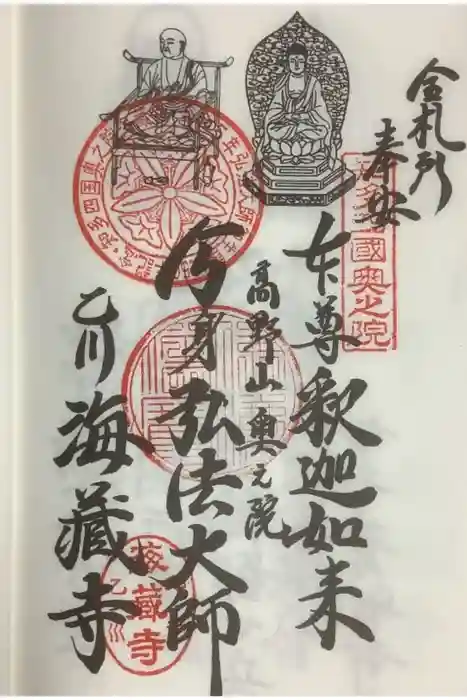 合札所
奉安
四國奥之院
本尊釈迦如来
高野山奥之院
分身弘法大師
乙川
海蔵寺
海蔵寺
乙川